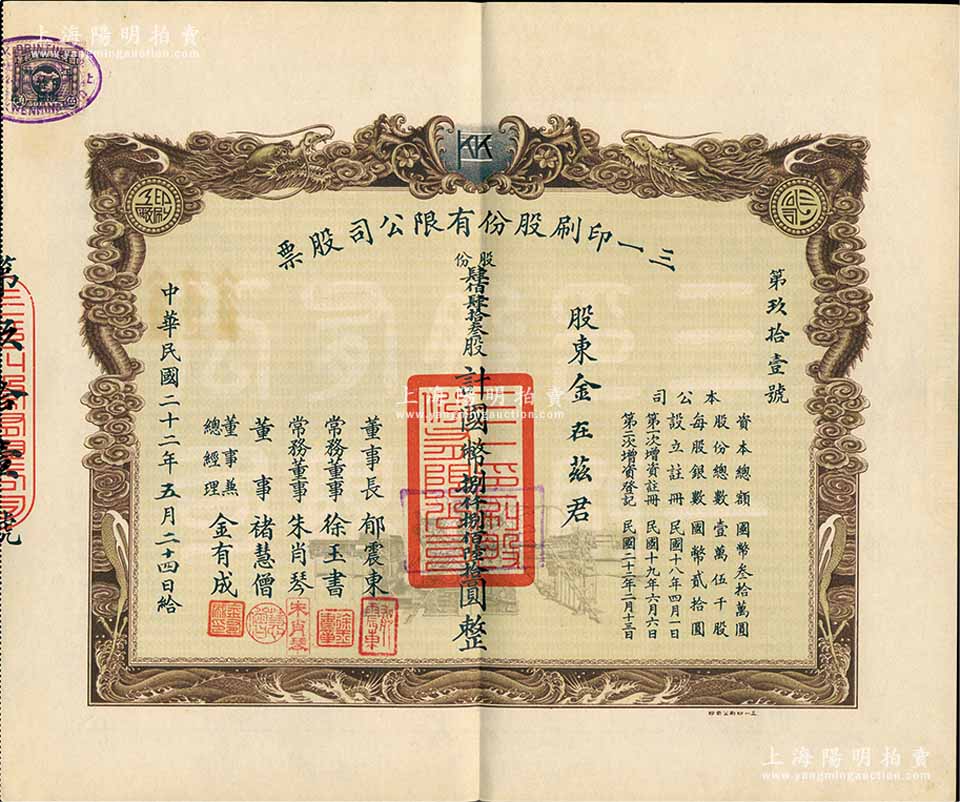 上海陽明拍賣
www.yangmingauction.com
KK
三一印刷股份有限公司股票
第玖拾壹號
本公司
資本總額 國幣叁拾萬圓
股份總數 壹萬伍千股
每股銀數 國幣貳拾圓
設立註冊 民國十八年四月一日
第一次增資註冊 民國十九年六月六日
第二次增資登記 民國二十二年二月十三日
股東金在茲君
股份肆佰肆拾叁股 計國幣捌仟捌佰陸拾圓整
董事長 郁震東
常務董事 徐玉書
常務董事 朱肖琴
董事 褚慧僧
董事兼總經理 金有成
中華民國二十二年五月二十四日給
第玖拾壹號
上海陽明拍賣
www.yangmingauction.com
上海陽明拍賣
www.yangmingauction.com